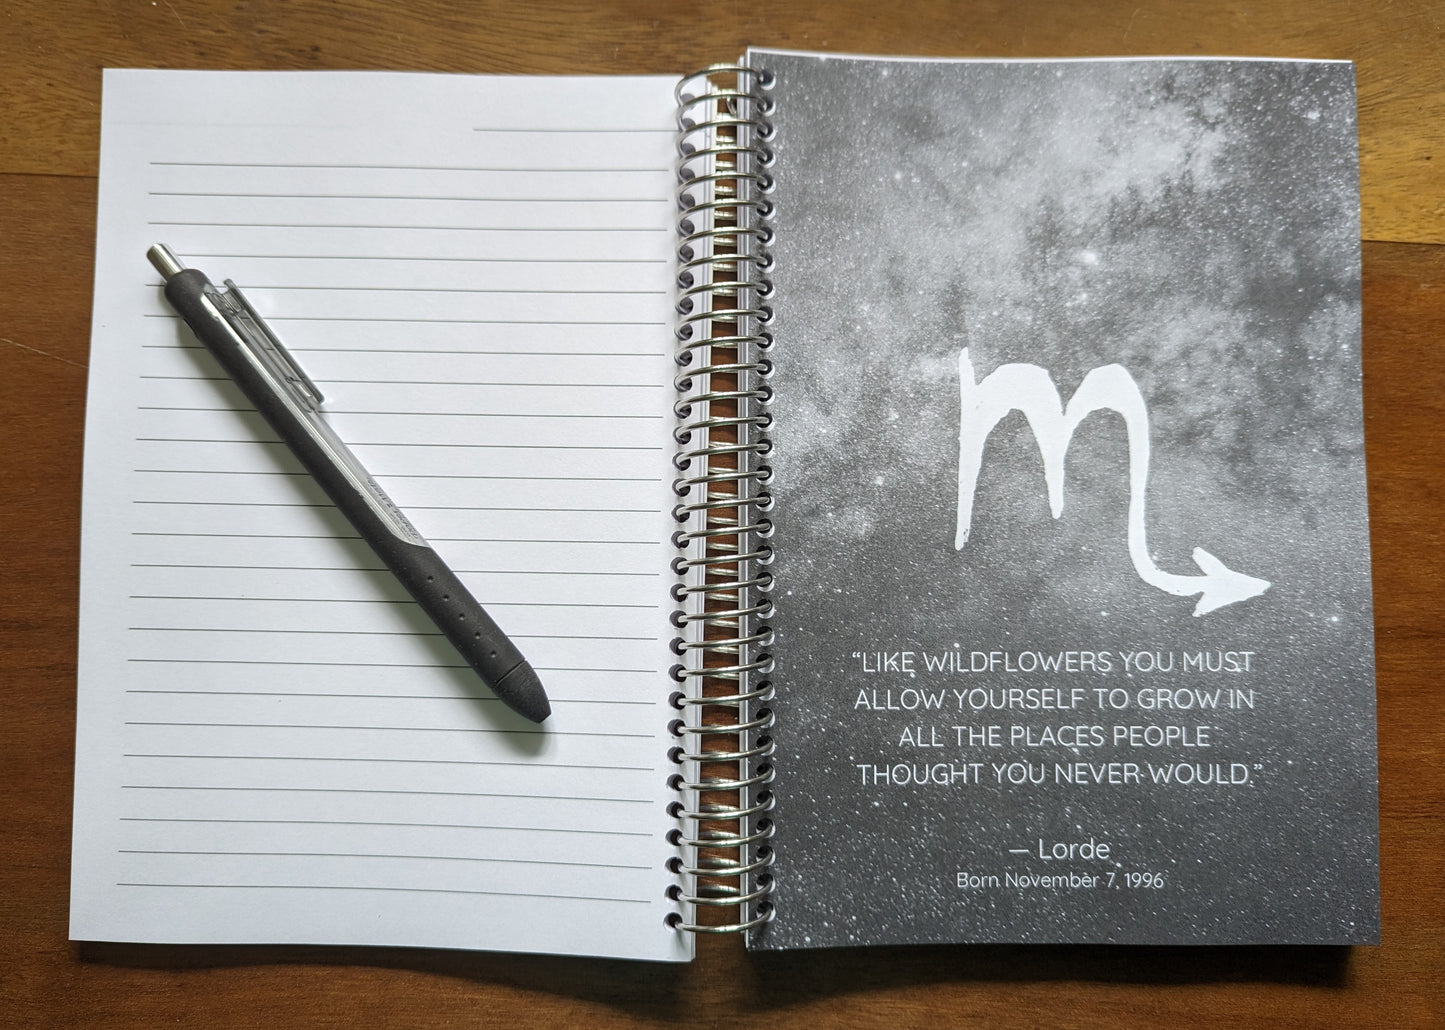 “LIKE WILDFLOWERS YOU MUST
ALLOW YOURSELF TO GROW IN
ALL THE PLACES PEOPLE
THOUGHT YOU NEVER WOULD.”
— Lorde
Born November 7, 1996